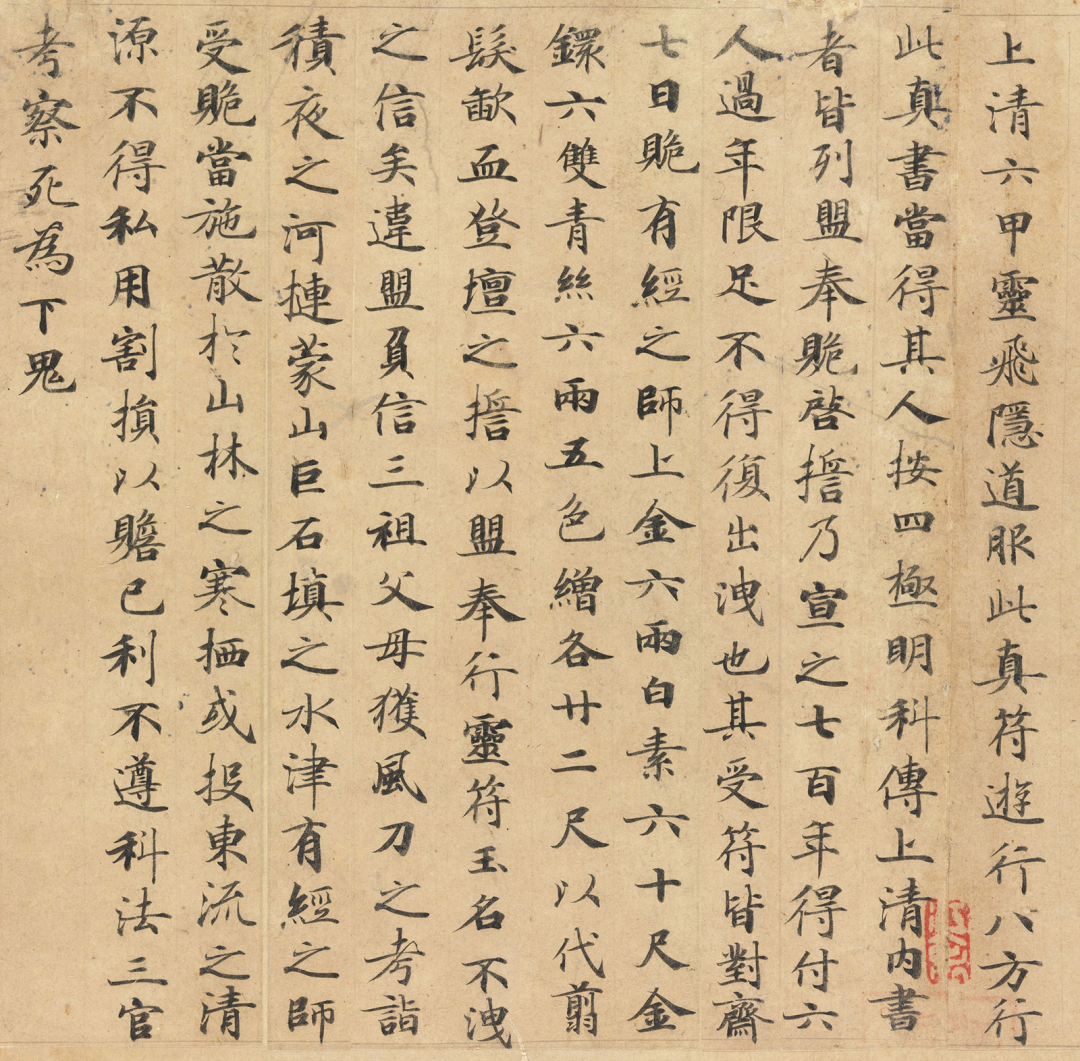 上清六甲靈飛隱道服此真符遊行八方行
此真書當得其人按四極明科傳上清內書
者皆列盟奉賭啓擔乃宣之七百年得付六
人過年限足不得復出洩也其受符皆對齋
七日賭有經之師上金六兩白素六十尺金
鐶六雙青絲六兩五色繒各廿二尺以代翦
髮歃血登壇之誓以盟奉行靈符玉名不洩
之信矣違盟負信三祖父母獲風刀之考詣
積夜之河摙蒙山巨石填之水津有經之師
受賭當施散於山林之寒栖或投東流之清
源不得私用割損以贍己利不遵科法三官
考察死為下鬼